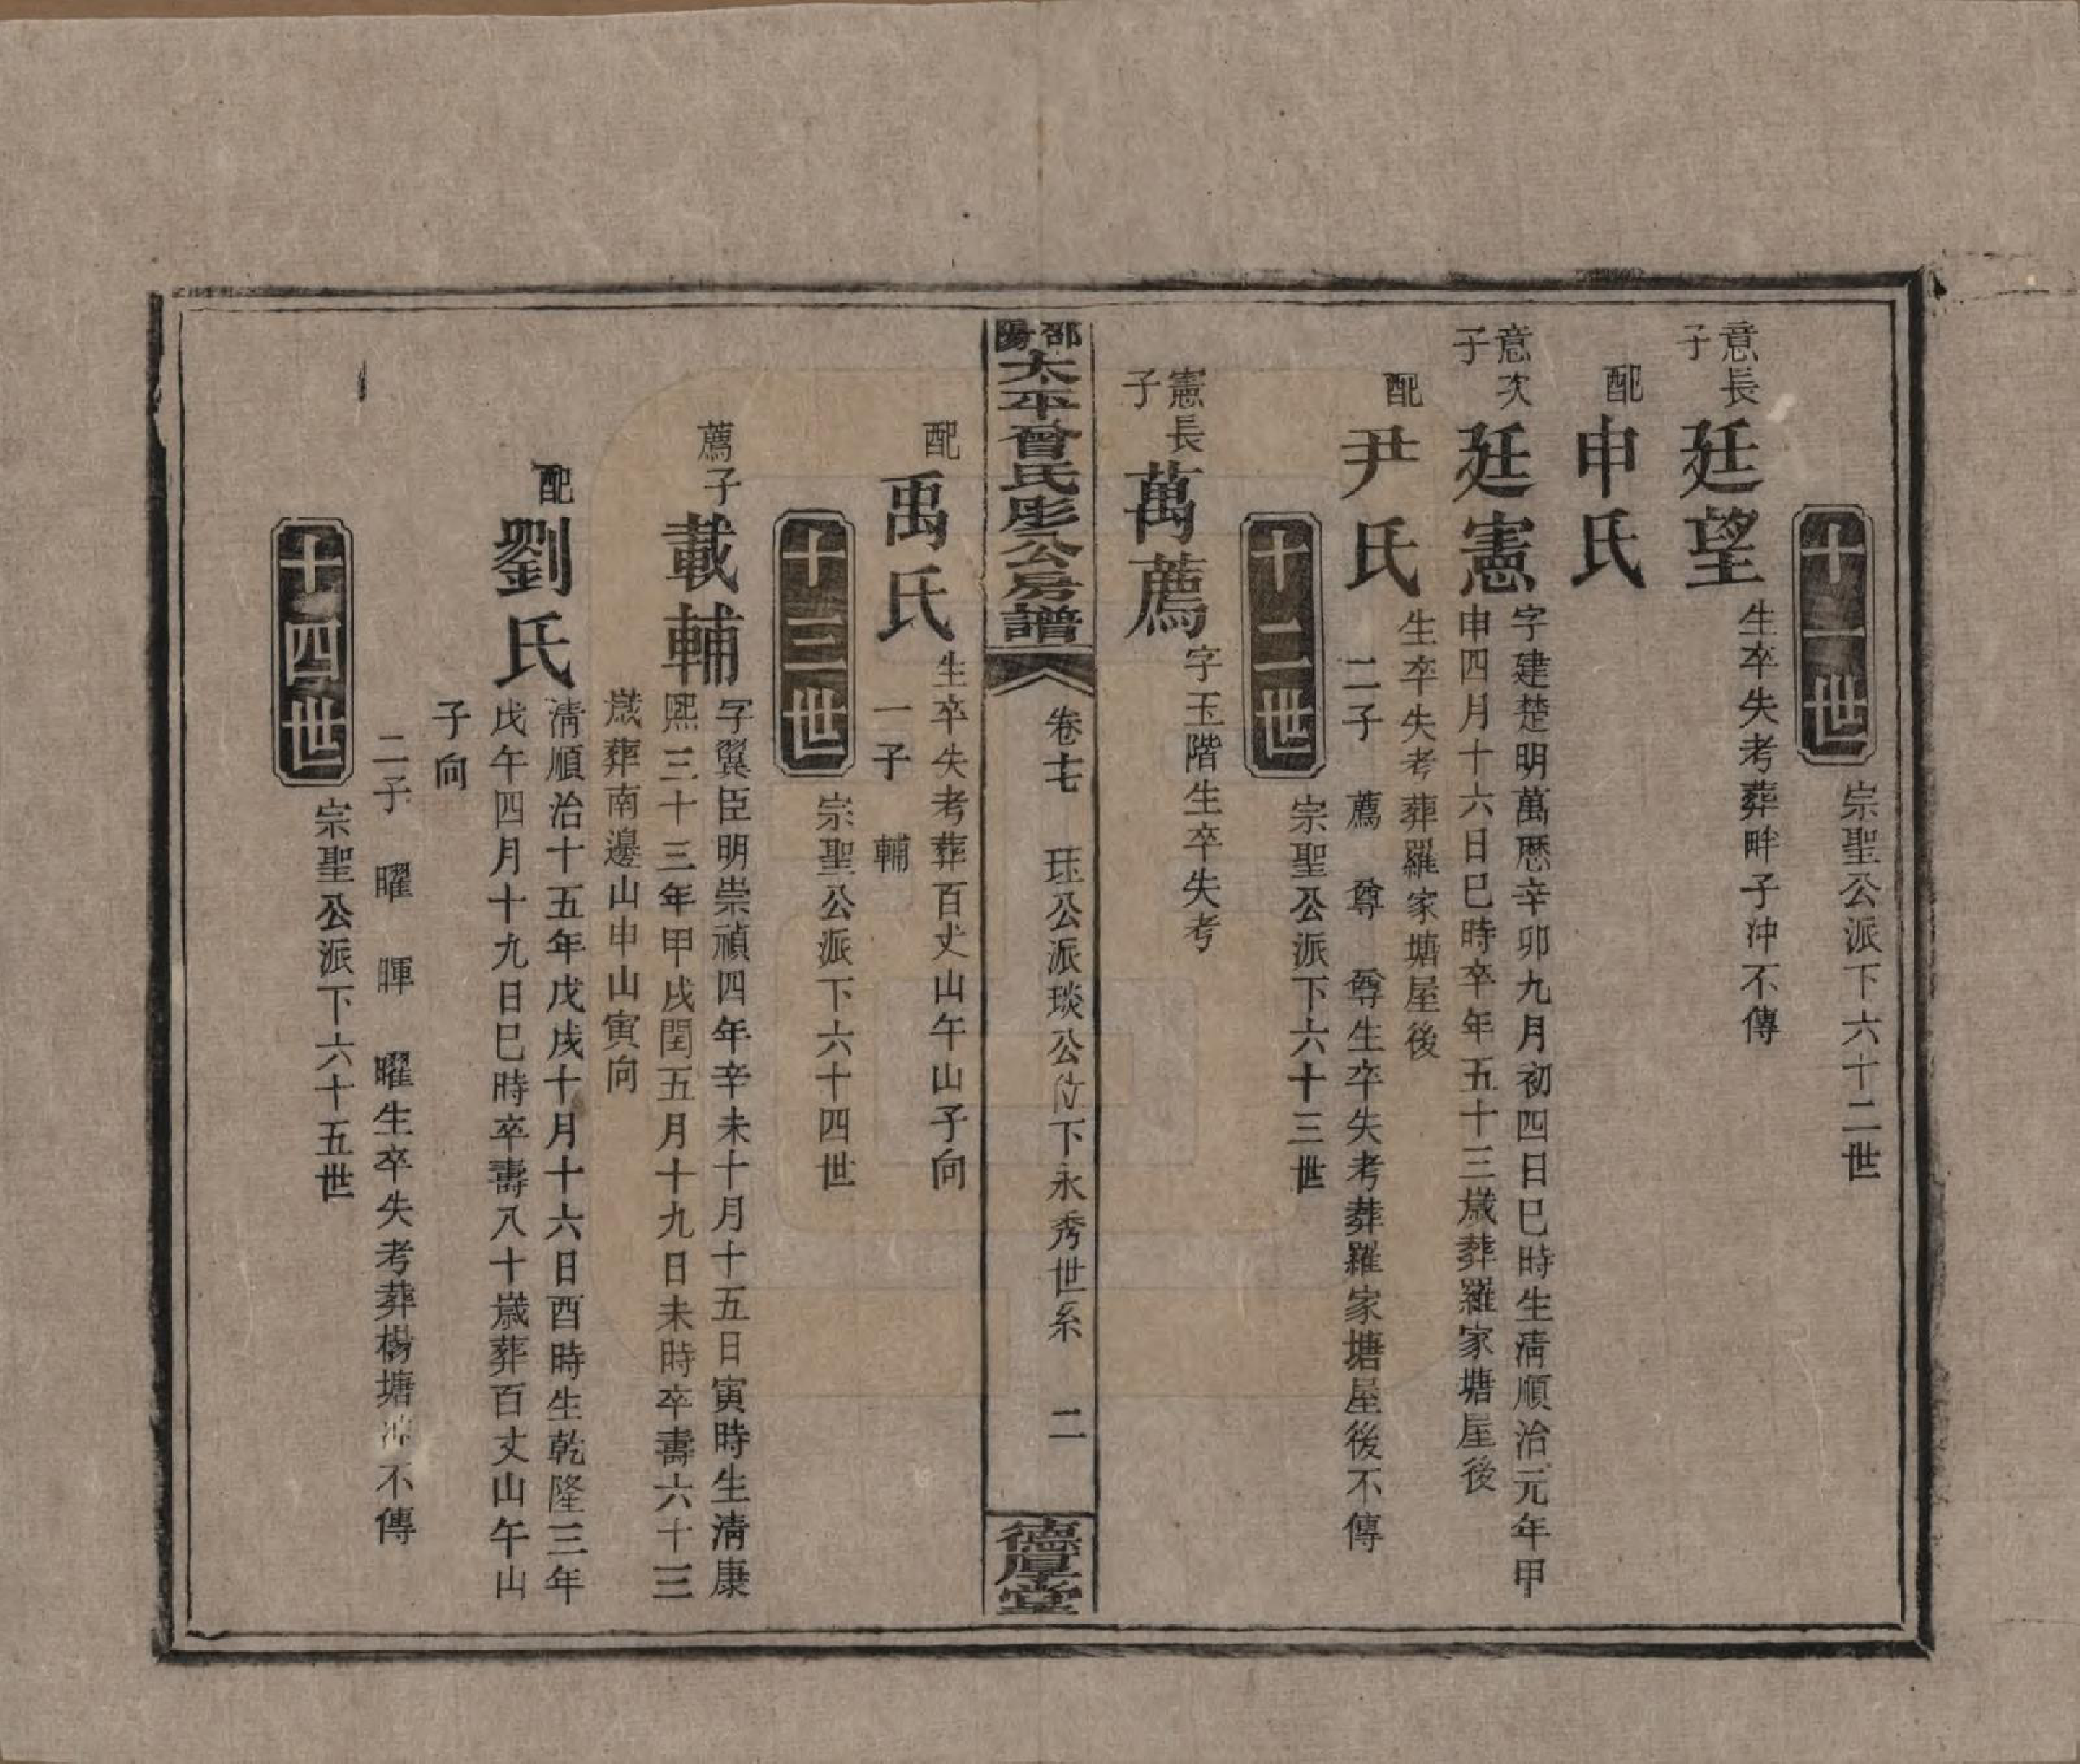 十一世
宗聖公派下六十二世
意長子
廷望
生卒失考葬畔子冲不傳
配
申氏
意次子
廷憲
字建楚明萬歷辛卯九月初四日巳時生淸順治元年甲
申四月十六日巳時卒年五十三歲葬羅家塘屋後
配
尹氏
生卒失考葬羅家塘屋後
二子 薦 尊 尊生卒失考葬羅家塘屋後不傳
十二世
宗聖公派下六十三世
憲長子
萬薦
字玉階生卒失考
邵陽太平曾氏彤公房譜
卷七 珏公派琰公位下永秀世系 二
德厚堂
配
禹氏
生卒失考葬百丈山午山子向
一子 輔
十三世
宗聖公派下六十四世
薦子
載輔
字翼臣明崇禎四年辛未十月十五日寅時生淸康
熙三十三年甲戌閏五月十九日未時卒壽六十三
歲葬南邊山申山寅向
配
劉氏
淸順治十五年戊戌十月十六日酉時生乾隆三年
戊午四月十九日巳時卒壽八十歲葬百丈山午山
子向
二子 曜 暉 曜生卒失考葬楊塘不傳
十四世
宗聖公派下六十五世